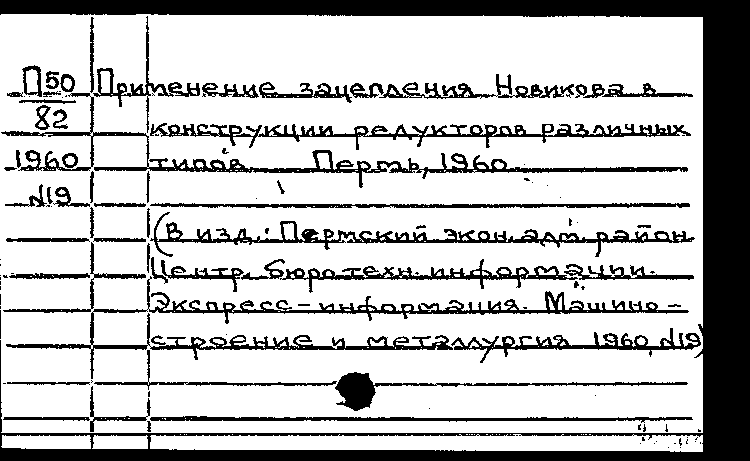 П50 Применение зацепления Новикова в
82 конструкции редукторов различных
1960 типов. Пермь, 1960
№19
(В изд.: Пермский экон. адм. район.
Центр. бюро техн. информации.
Экспресс-информация. Машино-
строение и металлургия 1960, №19)